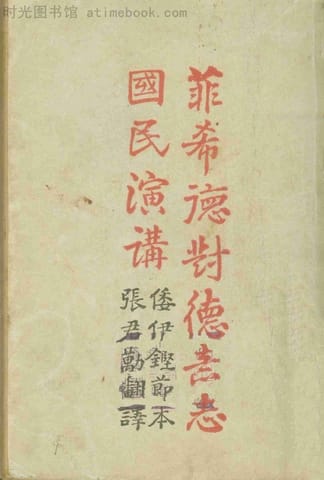 时光图书馆 - atimebook.com
菲希德對德意志
國民演講
倭伊鏗節本
張君勱翻譯